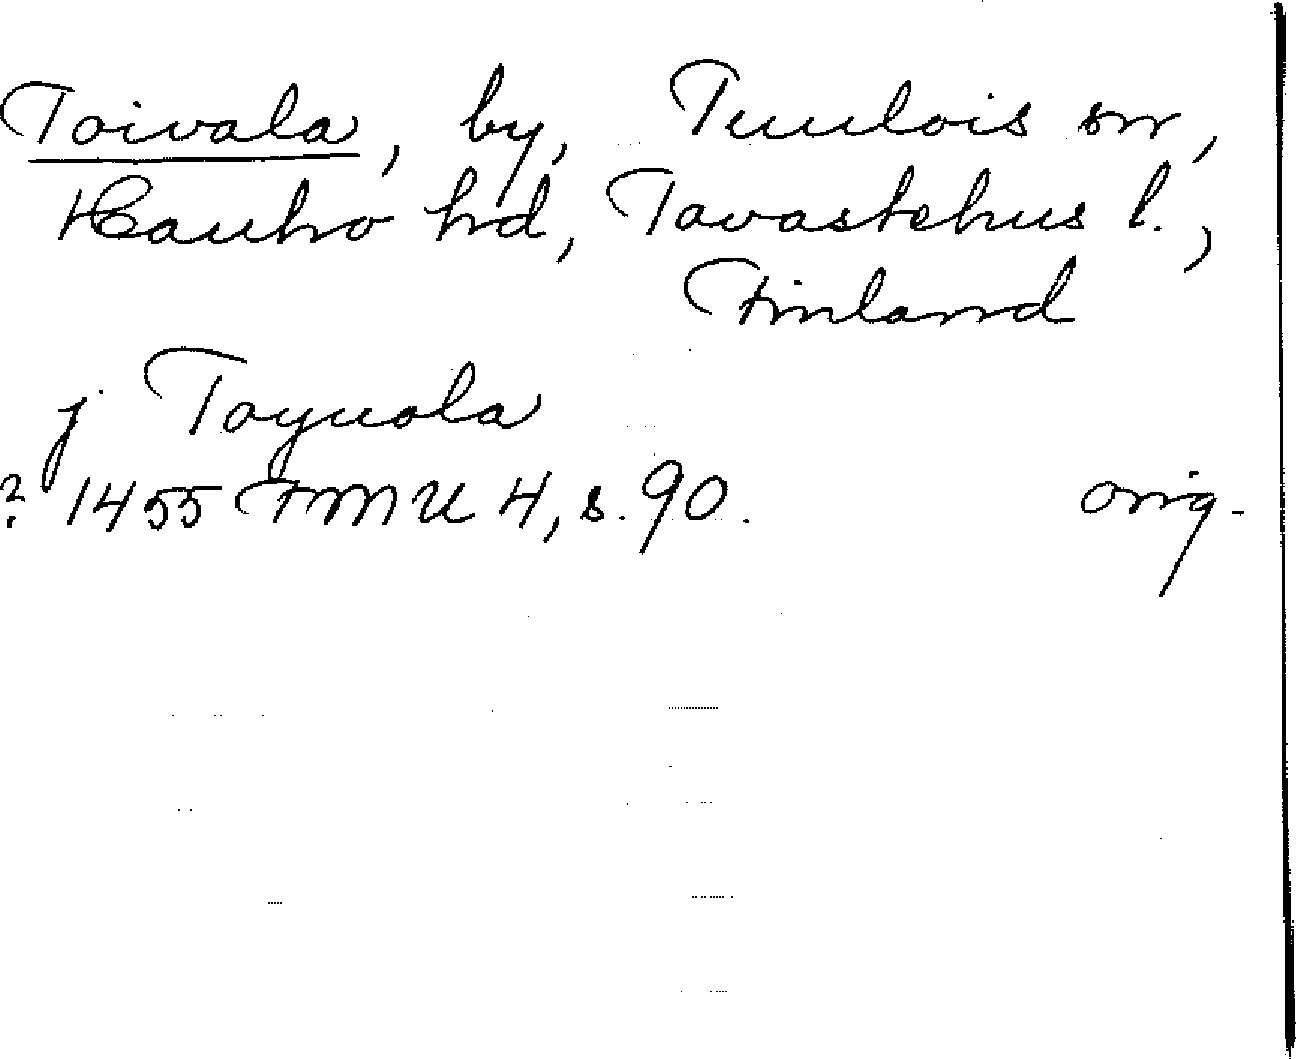 Toivala, by, Tuulois sn,
Hauho hd, Tavastehus l.,
Finland
j Toyuola
? 1455 FMU 4, s. 90. orig.